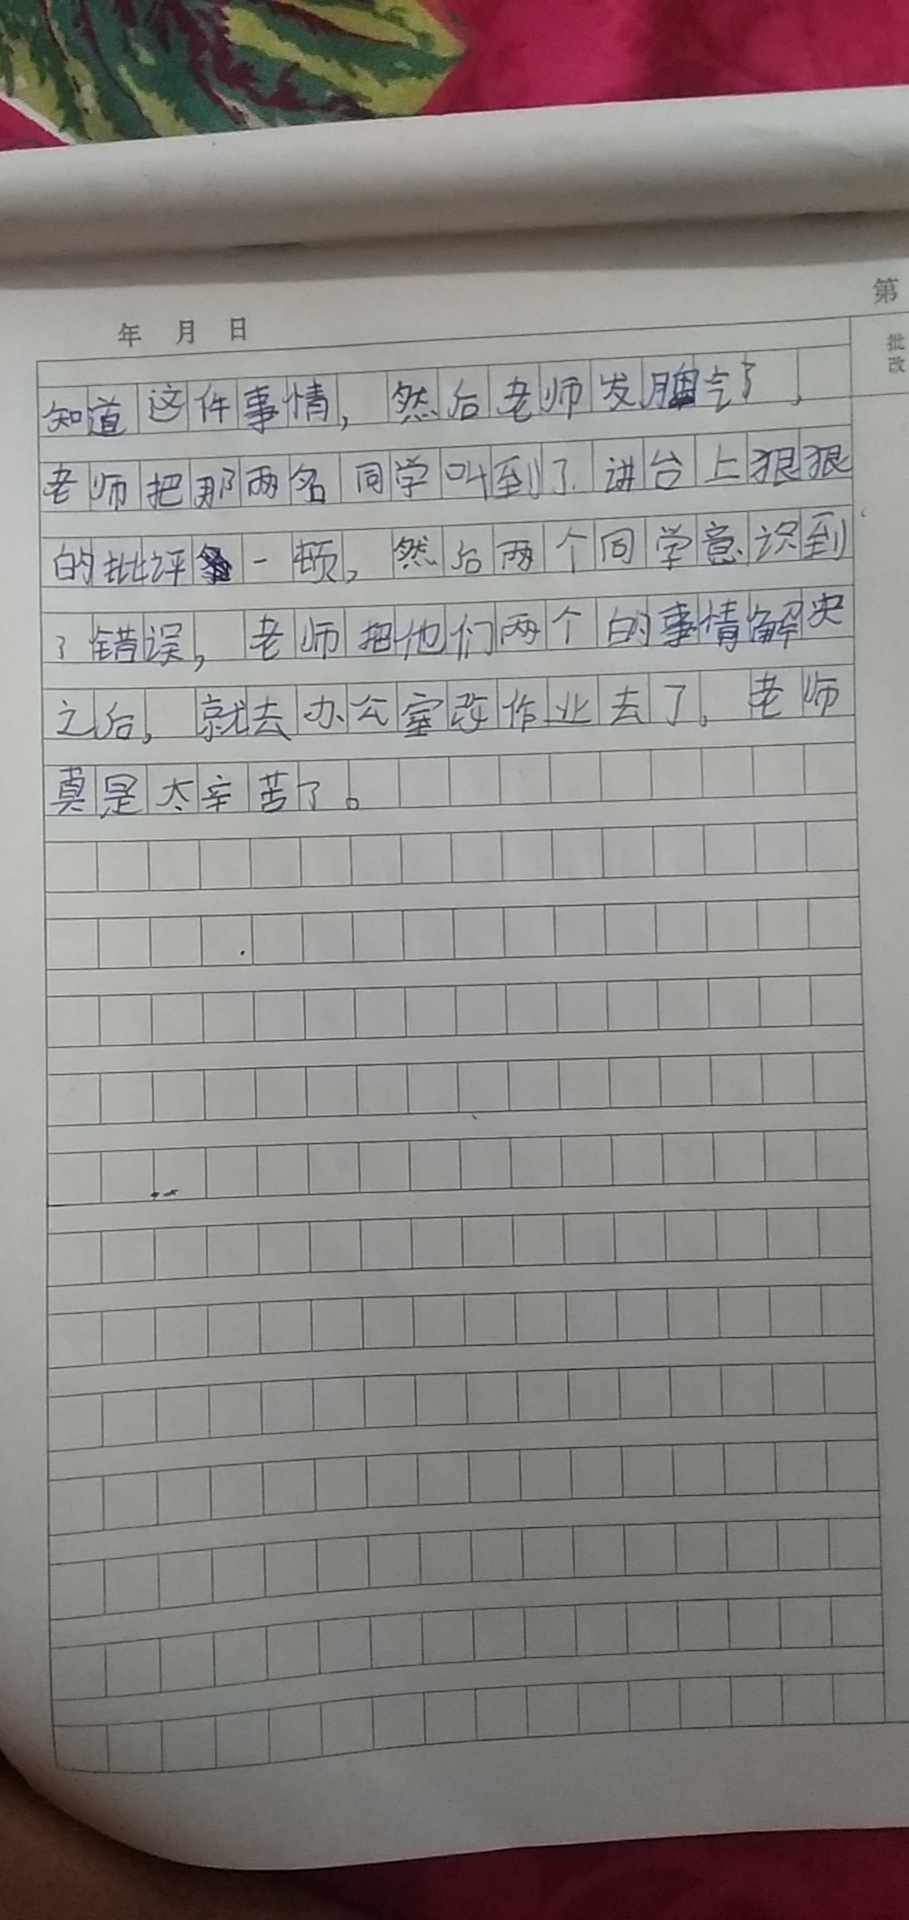 第
年 月 日
批改
知道这件事情，然后老师发脾气了，
老师把那两名同学叫到了讲台上狠狠
的批评一顿，然后两个同学意识到
了错误，老师把他们两个的事情解决
之后，就去办公室改作业去了。老师
真是太辛苦了。